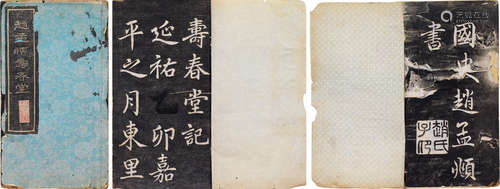 趙孟頫壽春堂
壽春堂記
延祐乙卯嘉
平之月東里
國史趙孟頫
書
趙氏
子昂